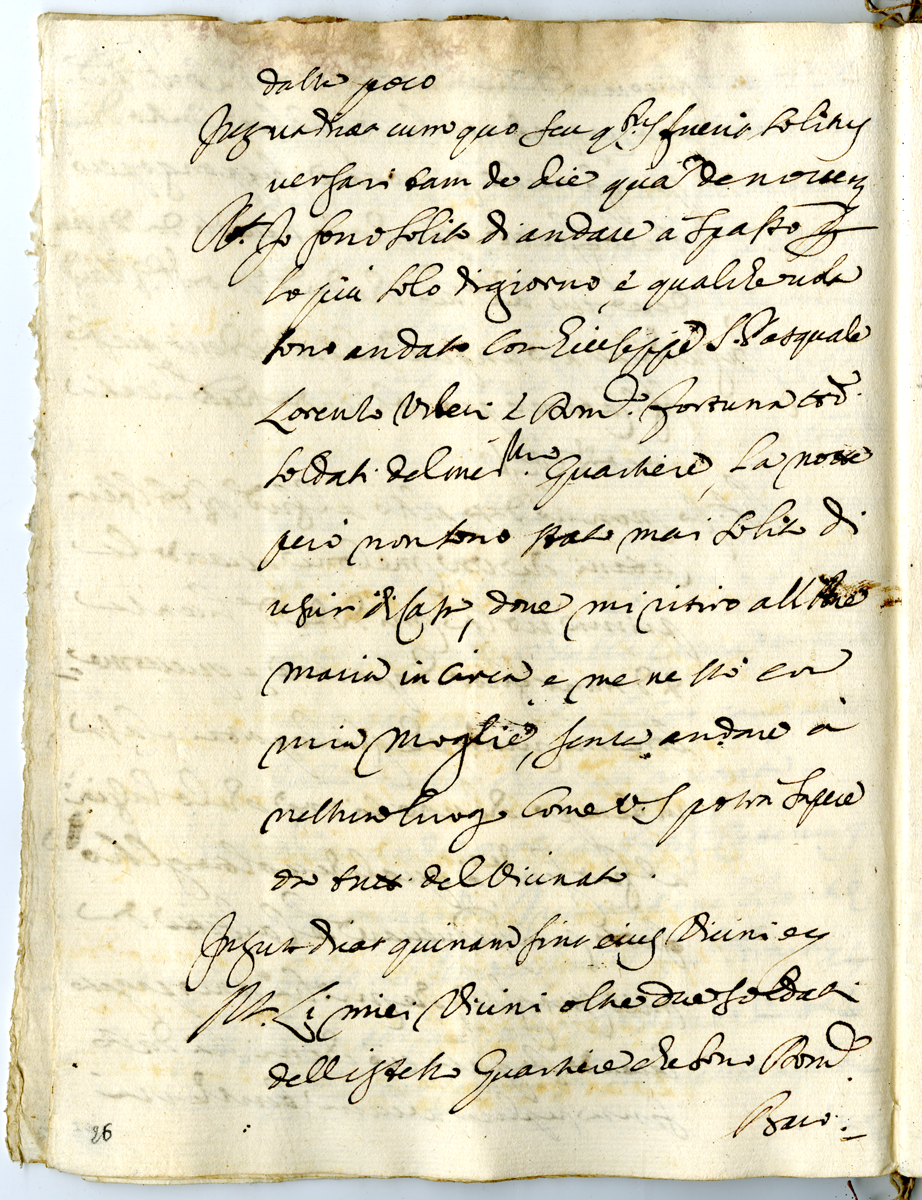 dalle poco
Int. ut dicat cum quo seu q.bus fuerit solitus
versari tam de die qua de nocte
R. Io sono solito di andare à spasso p
lo più solo di giorno, e qualche volta
sono andato con Giuseppe S. Pasquale
Lorenzo Uberi e Bom.o fortuna
soldati del med.mo Quartiere, La notte
però non sono stato mai solito di
uscir di Casa, dove mi ritiro all Ave
maria in Circa e me ne stò con
mia Moglie, senza andare à
nessun luogo Come V.S potrà sapere
da tutt. del Vicinato.
Int. ut dicat quinam sint eius Vicini
R. Li miei Vicini oltre due soldati
dell istesso Quartiere che sono Bom.o
Baro.
26